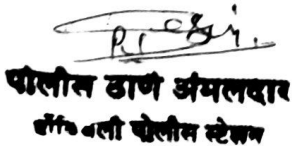 पोलीस ठाणे अंमलदार
डोंबिवली पोलीस स्टेशन